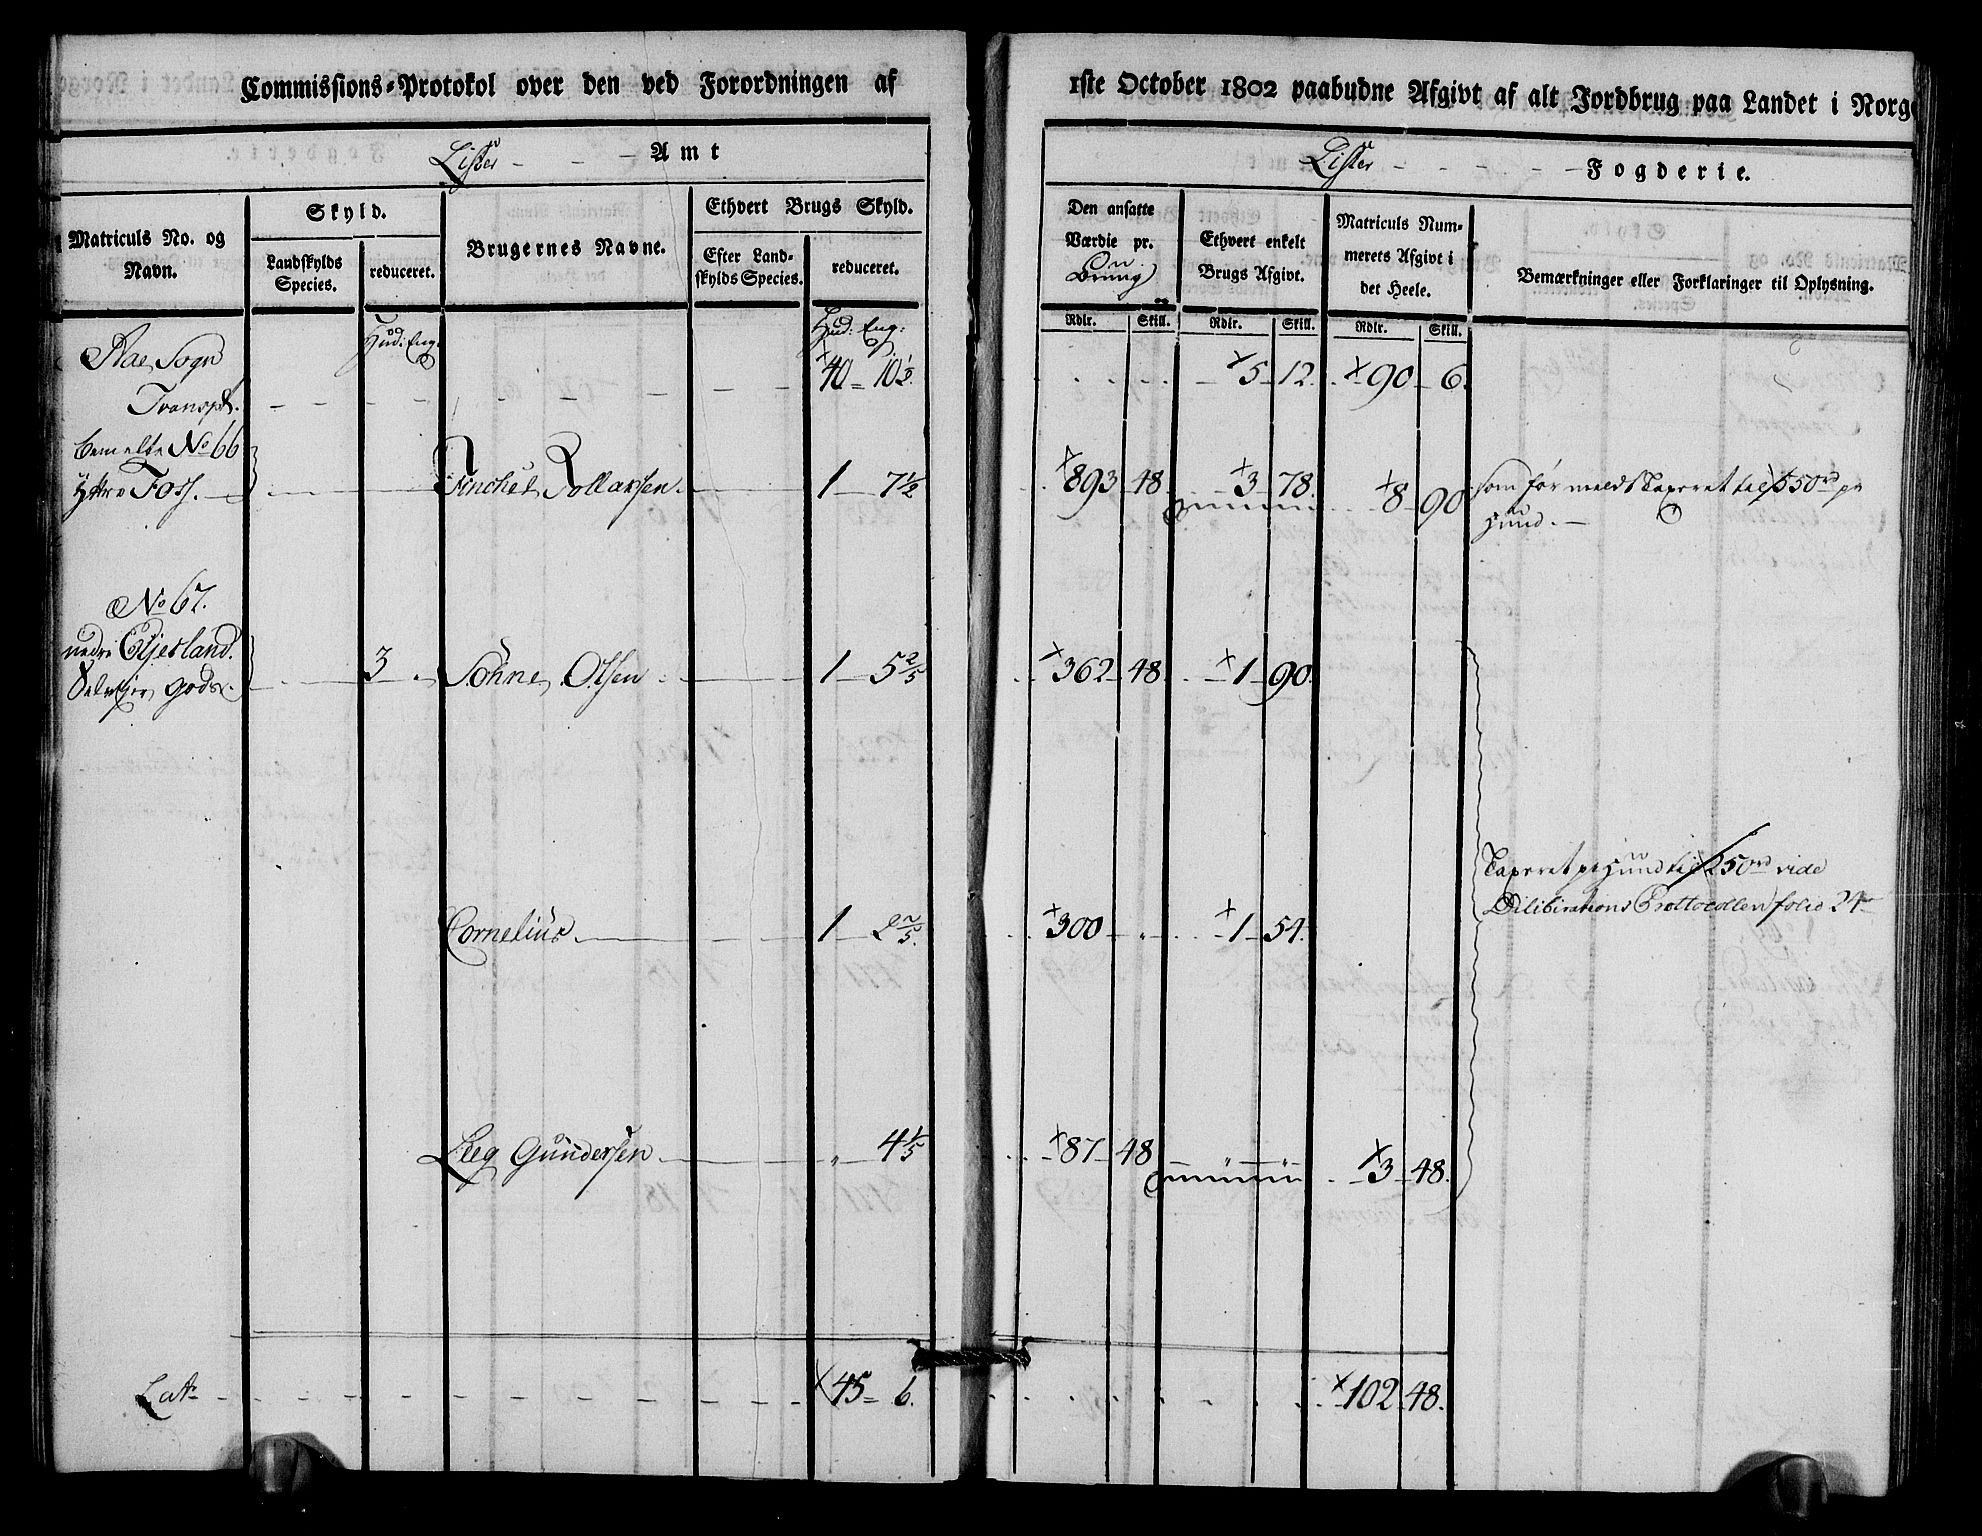 Commissions-Protokol over den ved Forordningen af
1ste October 1802 paabudne Afgivt af alt Jordbrug paa Landet i Norge
Lister Amt
Lister Fogderie.
Matriculs No. og Navn.
Skyld.
Landskylds Species.
reduceret.
Brugernes Navne.
Ethvert Brugs Skyld.
Efter Landskylds Species.
reduceret.
Den ansatte Værdie pr. Brug
Ethvert enkelt Brugs Afgivt.
Matriculs Nummerets Afgivt i det Heele.
Bemærkninger eller Forklaringer til Oplysning.
Hud: Eng:
Hud: Eng:
Rdlr. Skill. Rdlr. Skill. Rdlr. Skill.
Aae Sogn
Transpt. 40 10½ 5 12 90 6
bemelte No 66
Ytre Foss. 1 7½ 893 48 3 78 8 90 som før meldt Taxeret til 550 rd pr
Hund.
No 67.
nedre Egjesland. 3 Söhne Olsen 1 5 2/5 362 48 1 90
gods.
Taxeret pr Hund til 250 rd vide
Cornelius 1 2 2/5 300 1 54 Deliberations Prottocollen folio 24
Leeg Gundersen 4 1/5 87 48 3 48
Lats 45 6 102 48